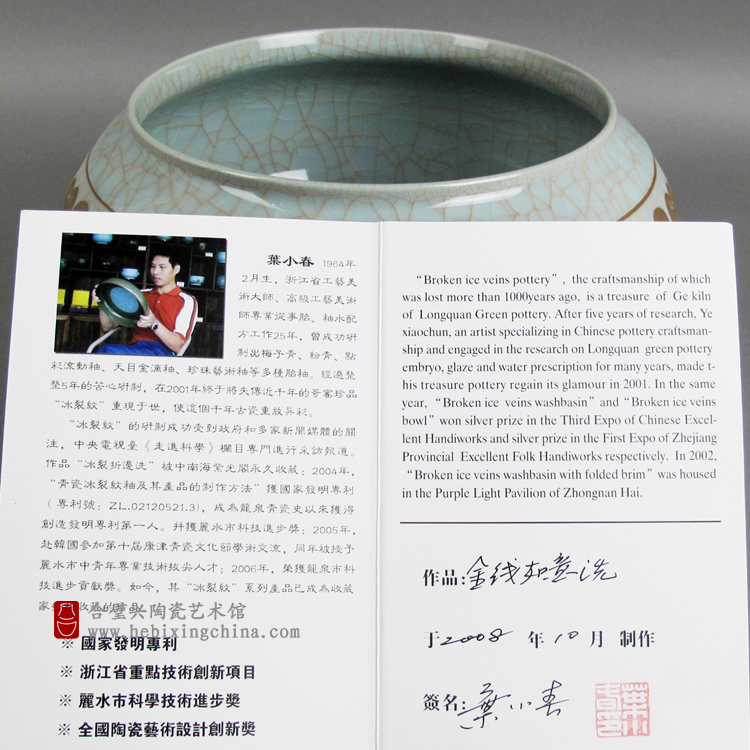 葉小春 1964年
2月生，浙江省工藝美
術大師、高級工藝美術
師專業從事胎、釉水配
方工作25年，曾成功研
制出梅子青、粉青、點
彩流動釉、天目金滴釉、珍珠藝術釉等多種胎釉。經過整
整5年的苦心研制，在2001年終于將失傳近千年的哥窰珍品
“冰裂紋”重現于世，使這個千年古瓷重放異彩。
“冰裂紋”的研制成功受到政府和多家新聞媒體的關
注，中央電視臺《走進科學》欄目專門進行采訪報道。
作品“冰裂折邊洗”被中南海紫光閣永久收藏；2004年，
“青瓷冰裂紋釉及其產品的制作方法”獲國家發明專利
（專利號：ZL.02120521.3)，成為龍泉青瓷史以來獲得
創造發明專利第一人。幷獲麗水市科技進步獎；2005年，
赴韓國參加第十屆康津青瓷文化節學術交流，同年被授予
麗水市中青年專業技術拔尖人才；2006年，榮獲龍泉市科
技進步貢獻獎。如今，其“冰裂紋”系列產品已成為收藏
家 收藏的珍品
合璧兴陶瓷艺术馆
www.hebixingchina.com
※ 國家發明專利
※ 浙江省重點技術創新項目
※ 麗水市科學技術進步獎
※ 全國陶瓷藝術設計創新獎
“Broken ice veins pottery”, the craftsmanship of which
was lost more than 1000years ago, is a treasure of Ge kiln
of Longquan Green pottery. After five years of research, Ye
xiaochun, an artist specializing in Chinese pottery craftsman-
ship and engaged in the research on Longquan green pottery
embryo, glaze and water prescription for many years, made t-
his treasure pottery regain its glamour in 2001. In the same
year, “Broken ice veins washbasin” and “Broken ice veins
bowl” won silver prize in the Third Expo of Chinese Excel-
lent Handiworks and silver prize in the First Expo of Zhejiang
Provincial Excellent Folk Handiworks respectively. In 2002,
“Broken ice veins washbasin with folded brim” was housed
in the Purple Light Pavilion of Zhongnan Hai.
作品:金线如意洗
于2008 年 10 月 制作
簽名:葉小春